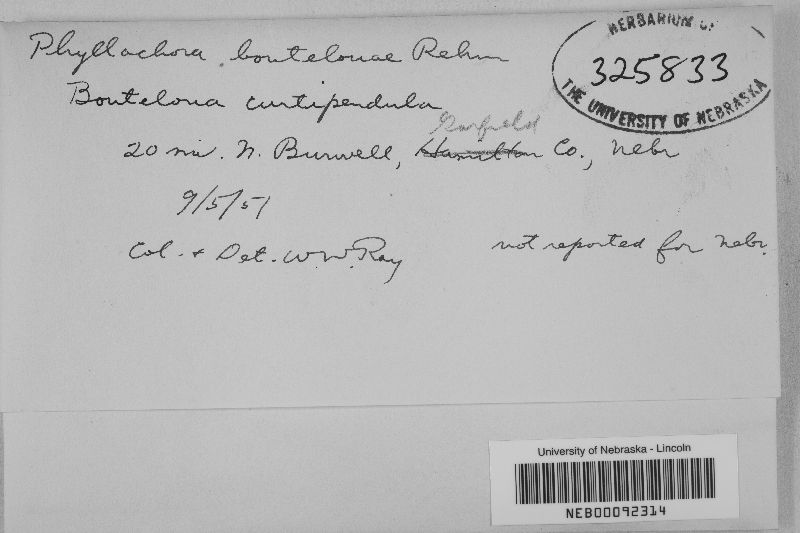 HERBARIUM OF
325833
THE UNIVERSITY OF NEBRASKA
Phyllachora boutelouae Rehm
Bouteloua curtipendula
Garfield
20 mi. N. Burwell, Hamilton Co., Nebr
9/5/51
Col. + Det. W.W. Ray
not reported for Nebr.
University of Nebraska - Lincoln
NEB00092314